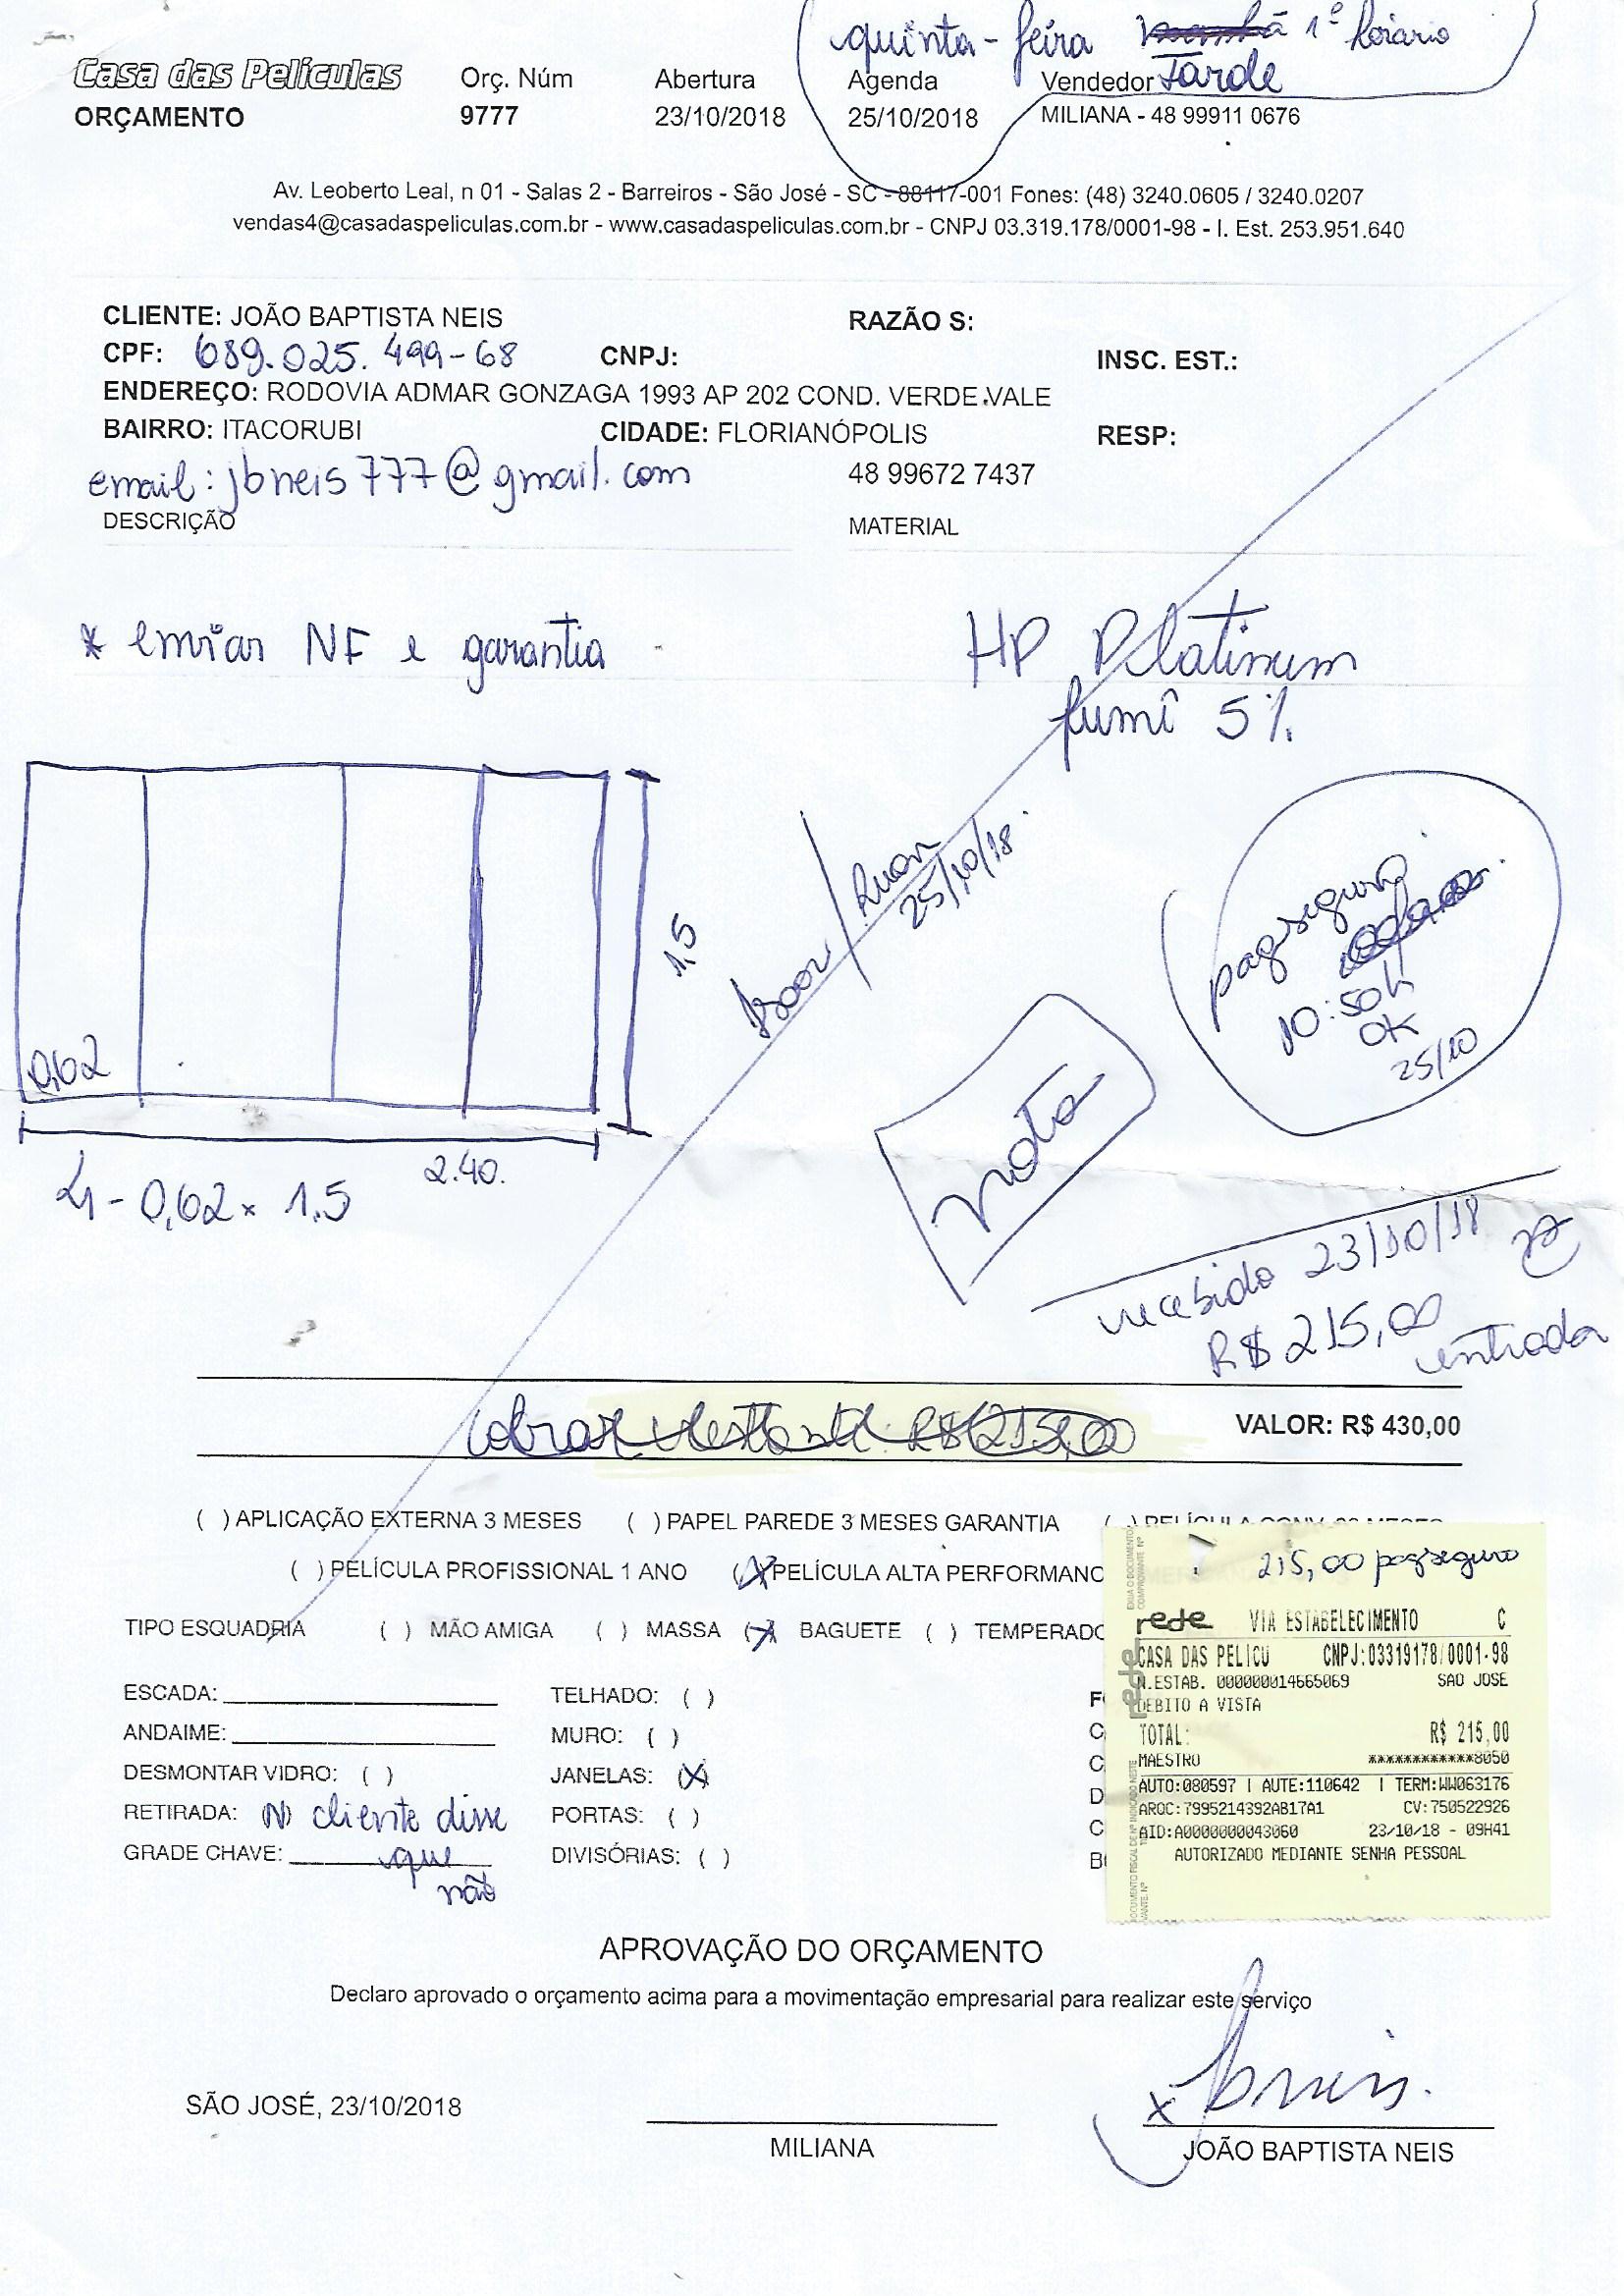 quinta-feira manhã 1º horário
Tarde
Casa das Películas
ORÇAMENTO
Orç. Núm
9777
Abertura
23/10/2018
Agenda
25/10/2018
Vendedor
MILIANA - 48 99911 0676
Av. Leoberto Leal, n 01 - Salas 2 - Barreiros - São José - SC - 88117-001 Fones: (48) 3240.0605 / 3240.0207
vendas4@casadaspeliculas.com.br - www.casadaspeliculas.com.br - CNPJ 03.319.178/0001-98 - I. Est. 253.951.640
CLIENTE: JOÃO BAPTISTA NEIS
RAZÃO S:
CPF: 689.025.499-68
CNPJ:
INSC. EST.:
ENDEREÇO: RODOVIA ADMAR GONZAGA 1993 AP 202 COND. VERDE VALE
BAIRRO: ITACORUBI
CIDADE: FLORIANÓPOLIS
RESP:
email: jbneis777@gmail.com
48 99672 7437
DESCRIÇÃO
MATERIAL
* enviar NF e garantia
HP Platinum
fumê 5%
Ruan
25/10/18.
1,5
0,62
2.40.
4 - 0,62 x 1.5
pagseguro
10:50h
OK
25/10
nota
recebido 23/10/18
R$ 215,00
entrada
cobrar restante: R$ 215,00
VALOR: R$ 430,00
( ) APLICAÇÃO EXTERNA 3 MESES
( ) PAPEL PAREDE 3 MESES GARANTIA
( ) PELÍCULA PROFISSIONAL 1 ANO
(X) PELÍCULA ALTA PERFORMANC
TIPO ESQUADRIA
( ) MÃO AMIGA
( ) MASSA
(X) BAGUETE
( ) TEMPERADO
ESCADA:
TELHADO: ( )
ANDAIME:
MURO: ( )
DESMONTAR VIDRO: ( )
JANELAS: (X)
RETIRADA: (N) cliente disse
PORTAS: ( )
GRADE CHAVE: que
não
DIVISÓRIAS: ( )
215,00 pagseguro
rede VIA ESTABELECIMENTO C
CASA DAS PELICU CNPJ:03319178/0001-98
N.ESTAB. 000000014665069 SAO JOSE
DEBITO A VISTA
TOTAL: R$ 215,00
MAESTRO ************8050
AUTO:080597 | AUTE:110642 | TERM:WW063176
AROC:7995214392AB17A1 CV:750522926
AID:A0000000043060 23/10/18 - 09H41
AUTORIZADO MEDIANTE SENHA PESSOAL
APROVAÇÃO DO ORÇAMENTO
Declaro aprovado o orçamento acima para a movimentação empresarial para realizar este serviço
SÃO JOSÉ, 23/10/2018
MILIANA
x jbneis.
JOÃO BAPTISTA NEIS